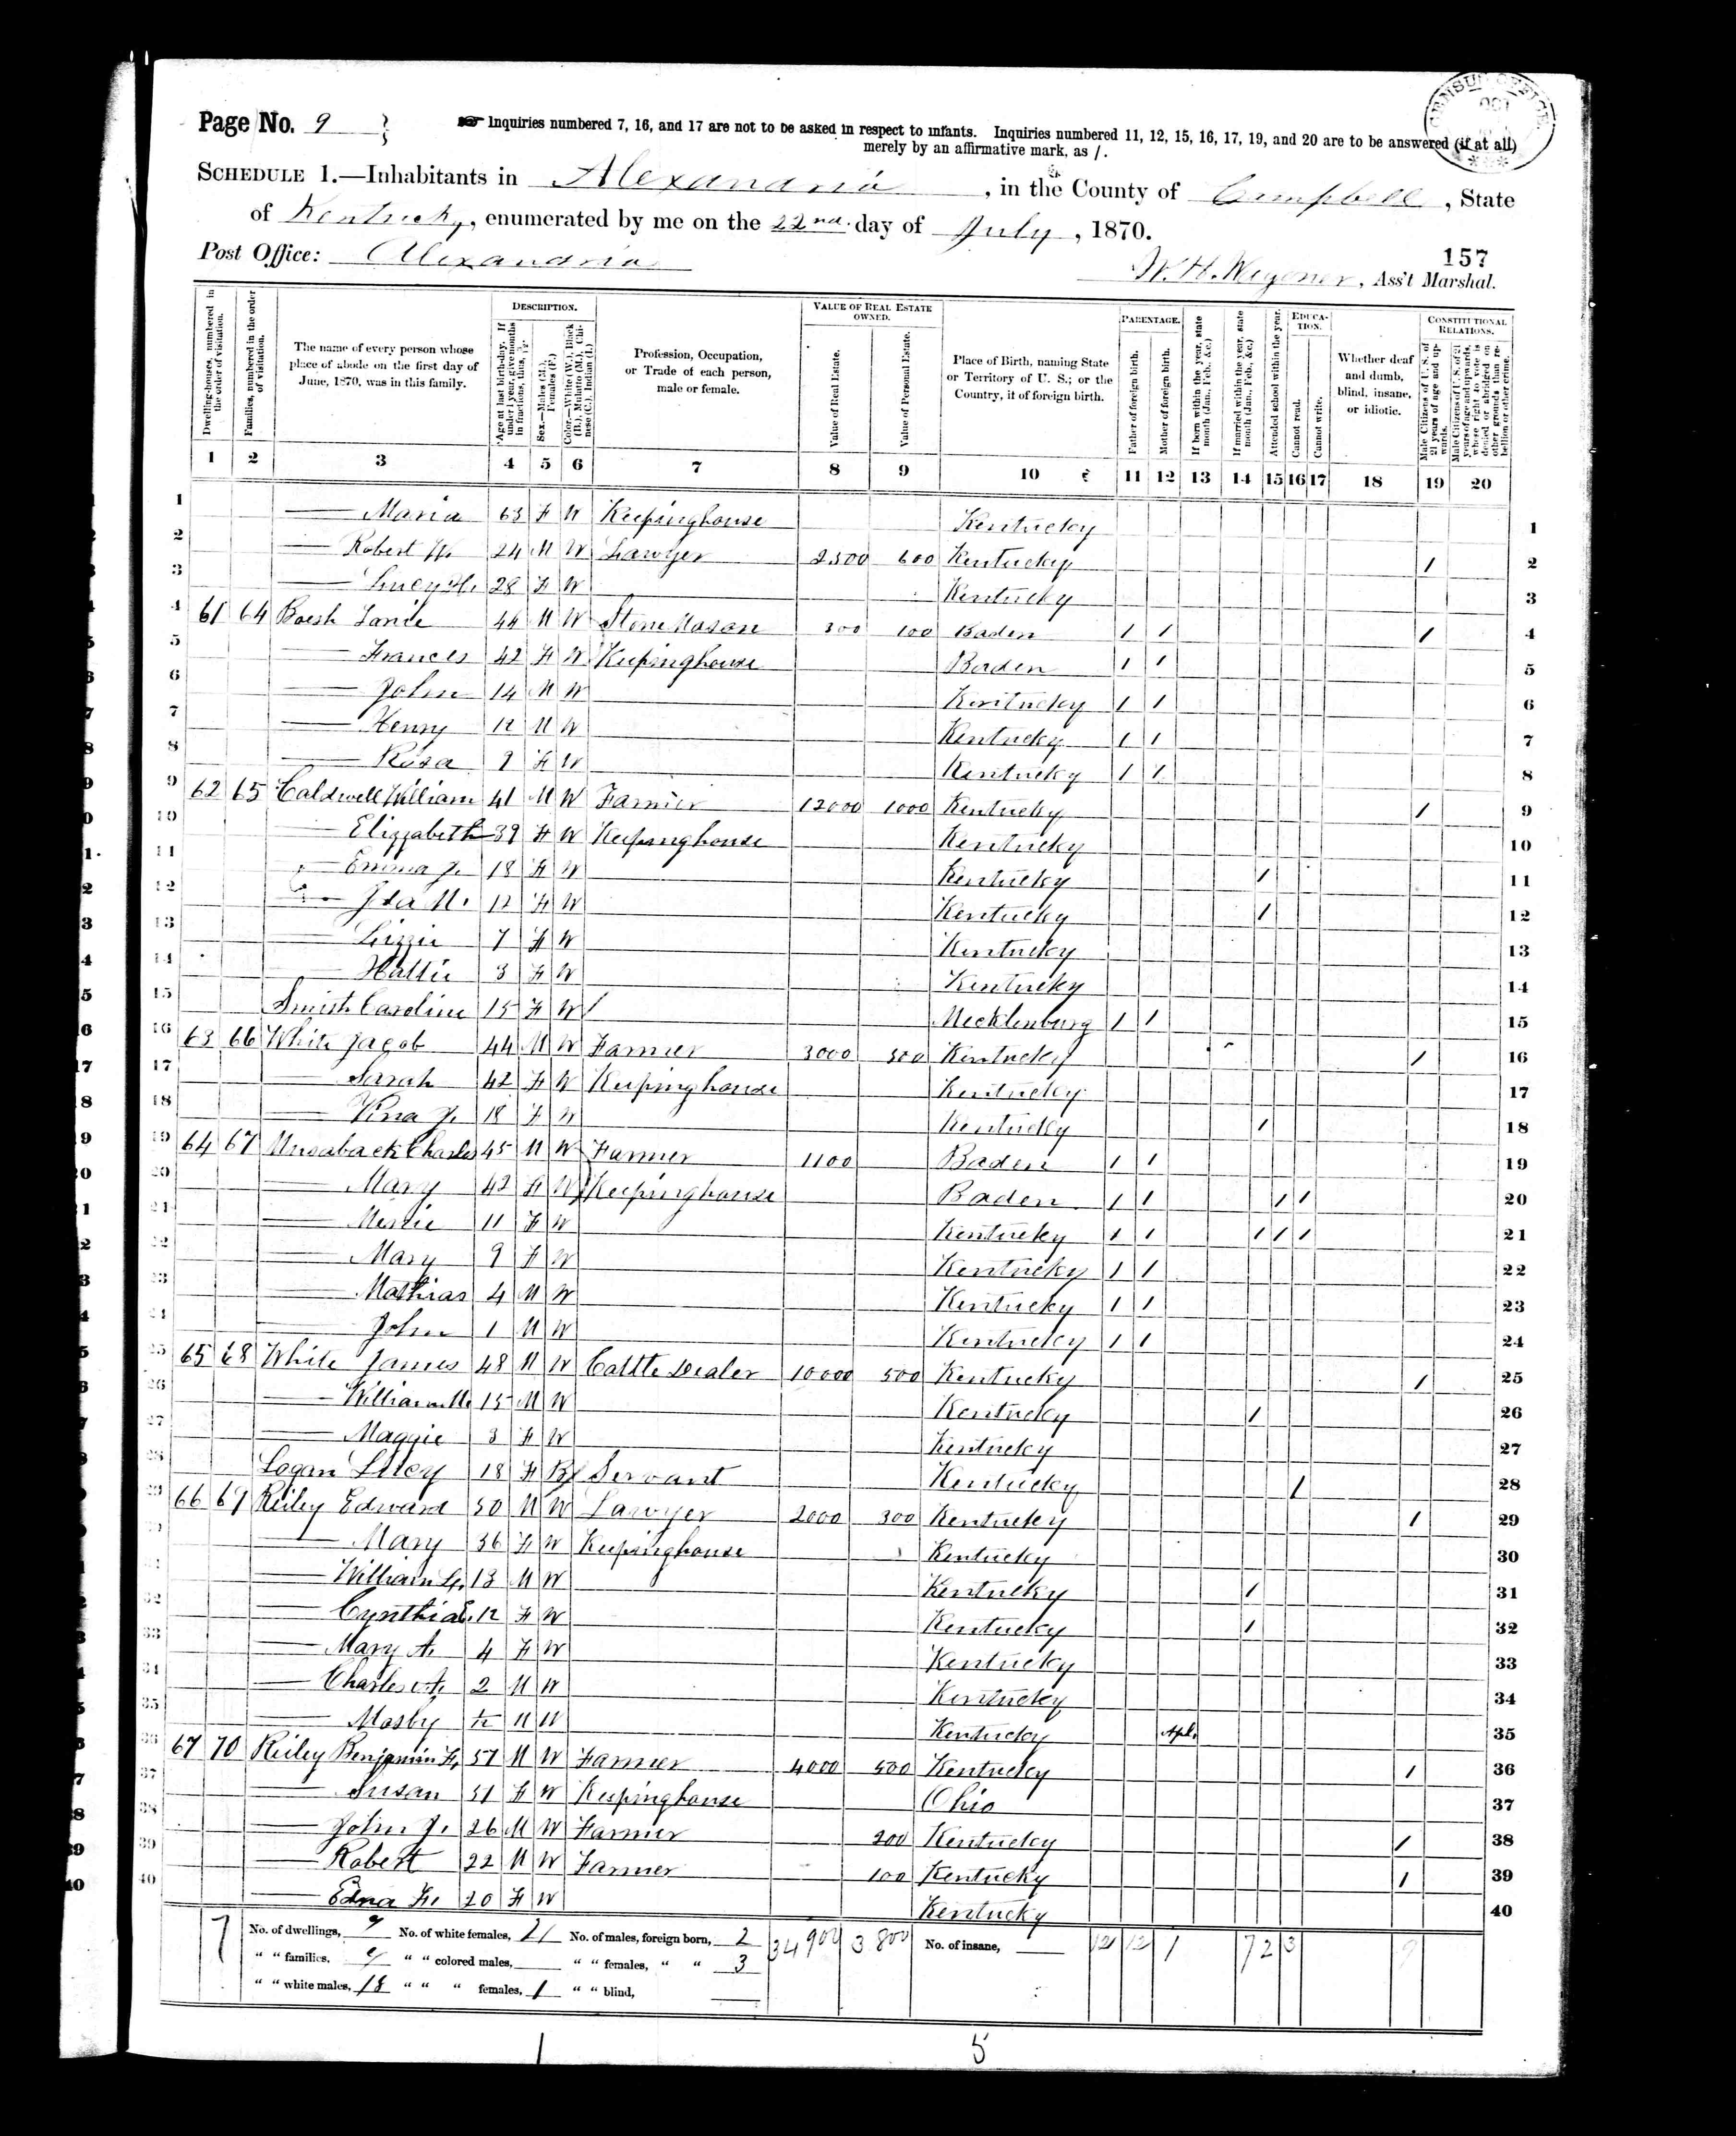 Page No. 9
☞ Inquiries numbered 7, 16, and 17 are not to be asked in respect to infants. Inquiries numbered 11, 12, 15, 16, 17, 19, and 20 are to be answered (if at all)
merely by an affirmative mark, as /.
CENSUS OFFICE
SCHEDULE 1.—Inhabitants in Alexandria, in the County of Campbell, State
of Kentucky, enumerated by me on the 22nd day of July, 1870.
157
Post Office: Alexandria W. H. Wegener, Ass't Marshal.
Dwelling-houses, numbered in the order of visitation.
Families, numbered in the order of visitation.
The name of every person whose place of abode on the first day of June, 1870, was in this family.
DESCRIPTION.
Age at last birth-day. If under 1 year, give months in fractions, thus,
Sex.—Males (M.), Females (F.)
Color.—White (W.), Black (B.), Mulatto (M.), Chinese (C.), Indian (I.)
Profession, Occupation, or Trade of each person, male or female.
VALUE OF REAL ESTATE OWNED.
Value of Real Estate.
Value of Personal Estate.
Place of Birth, naming State or Territory of U. S.; or the Country, if of foreign birth.
PARENTAGE.
Father of foreign birth.
Mother of foreign birth.
If born within the year, state month (Jan., Feb., &c.)
If married within the year, state month (Jan., Feb., &c.)
Attended school within the year.
EDUCATION.
Cannot read.
Cannot write.
Whether deaf and dumb, blind, insane, or idiotic.
CONSTITUTIONAL RELATIONS.
Male Citizens of U. S. of 21 years of age and upwards.
Male Citizens of U. S. of 21 years of age and upwards, whose right to vote is denied or abridged on other grounds than rebellion or other crime.
1 2 3 4 5 6 7 8 9 10 11 12 13 14 15 16 17 18 19 20
1 — Maria 63 F W Keepinghouse Kentucky 1
2 — Robert W. 24 M W Lawyer 2500 600 Kentucky / 2
3 — Lucy H. 28 F W Kentucky 3
4 61 64 44 M W Stone Mason 300 100 Baden / / / 4
5 — Frances 42 F W Keepinghouse Baden / / 5
6 — John 14 M W Kentucky / / 6
7 — Henry 12 M W Kentucky / / 7
8 — Rosa 9 F W Kentucky / / 8
9 62 65 Caldwell William 41 M W Farmer 12000 1000 Kentucky / 9
10 — Elizzabeth 39 F W Keepinghouse Kentucky 10
11 — Emma J. 18 F W Kentucky / 11
12 — Ida M. 12 F W Kentucky / 12
13 — Lizzie 7 F W Kentucky 13
14 — Hattie 3 F W Kentucky 14
15 Caroline 15 F W Mecklenburg / / 15
16 63 66 White Jacob 44 M W Farmer 3000 500 Kentucky / 16
17 — Sarah 42 F W Keepinghouse Kentucky 17
18 — Vina J. 18 F W Kentucky / 18
19 64 67 Charles 45 M W Farmer 1100 Baden / / 19
20 — Mary 42 F W Keepinghouse Baden / / / / 20
21 — 11 F W Kentucky / / / / / 21
22 — Mary 9 F W Kentucky / / 22
23 — Mathias 4 M W Kentucky / / 23
24 — John 1 M W Kentucky / / 24
25 65 68 White James 48 M W Cattle Dealer 10000 500 Kentucky / 25
26 — William M. 15 M W Kentucky / 26
27 — Maggie 3 F W Kentucky 27
28 Logan Lucy 18 F B Servant Kentucky / 28
29 66 69 Reiley Edward 50 M W Lawyer 2000 300 Kentucky / 29
30 — Mary 36 F W Keepinghouse Kentucky 30
31 — William 13 M W Kentucky / 31
32 — Cynthia E. 12 F W Kentucky / 32
33 — Mary A. 4 F W Kentucky 33
34 — Charles A. 2 M W Kentucky 34
35 — Mosby M W Kentucky Apl. 35
36 67 70 Reiley Benjamin F. 57 M W Farmer 4000 500 Kentucky / 36
37 — Susan 51 F W Keepinghouse Ohio 37
38 — John J. 26 M W Farmer 200 Kentucky / 38
39 — Robert 22 M W Farmer 100 Kentucky / 39
40 — Edna F. 20 F W Kentucky 40
7 No. of dwellings, 7 No. of white females, 21 No. of males, foreign born, 2 34900 3800 No. of insane, 12 12 1 7 2 3 9
" " families, " " colored males, " " females, " " 3
" " white males, 18 " " " females, 1 " " blind,
1 5